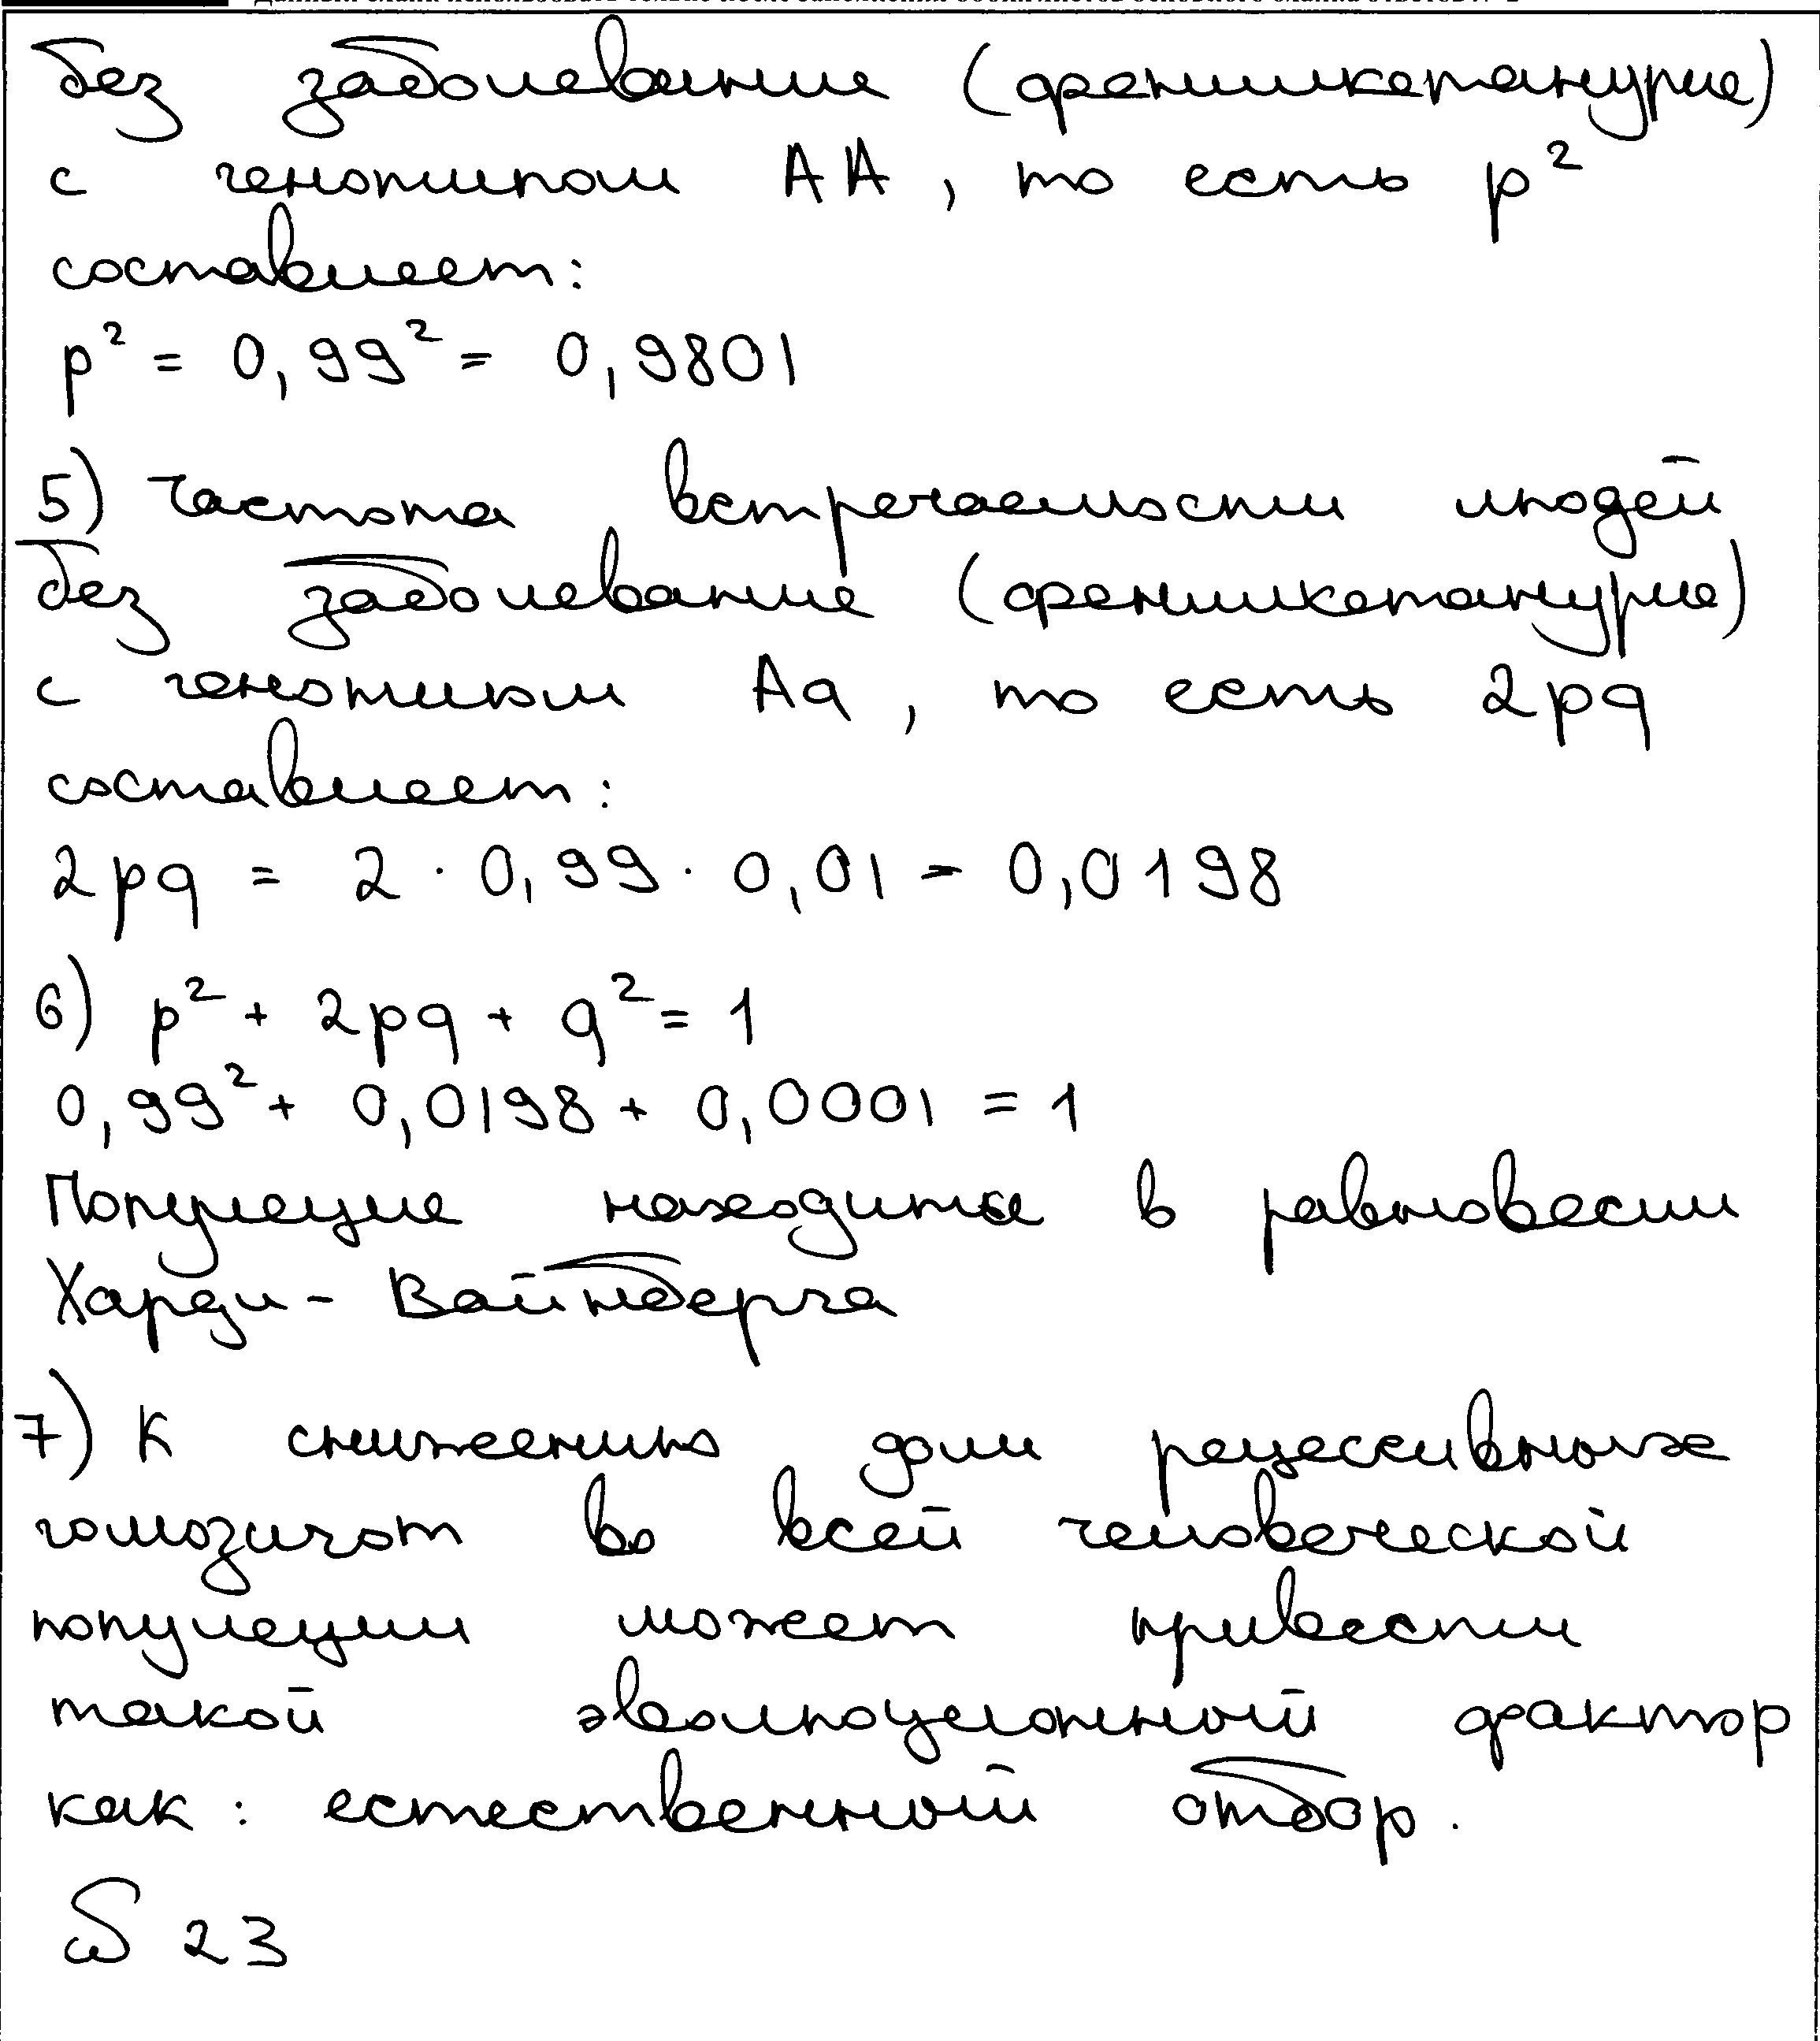 без заболевания (фенилкетанурия)
с генотипом АА, то есть p²
составляет:
p² = 0,99² = 0,9801
5) Частота встречаемости людей
без заболевания (фенилкетанурия)
с генотипом Аа, то есть 2pq
составляет:
2pq = 2 · 0,99 · 0,01 = 0,0198
6) p² + 2pq + q² = 1
0,99² + 0,0198 + 0,0001 = 1
Популяция находится в равновесии
Харди - Вайнберга
7) К снижению доли рецессивных
гомозигот во всей человеческой
популяции может привести
такой эволюционный фактор
как: естественный отбор.
23